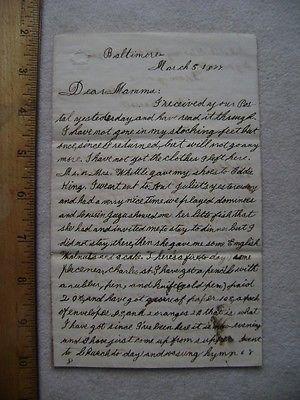 Baltimore
March 5, 18
Dear Mamma:
I received your Pos
tal yesterday and have read it through.
I have not gone in my stocking feet but
once, since I returned, but will not go any
more. I have not got the clothes I left here.
Mrs. White gave my shoes to Eddie
King. I went out to Aunt Juliet's yesterday
and had a very nice time we played dominoes
and cousin showed me her little fish that
she had and invited me to stay to dinner, but I
did not stay there, then she gave me some English
Walnuts and a cake. I here is a some
place near Charles st. I have got a pencil with
a rubber, pen, and knife (gold pen) paid
20¢, and have got of paper a pack
of envelopes and 2 oranges that is what
I have got since I've been here it is now evening
and I have just come up from supper went
to Church to day and we sung hymn